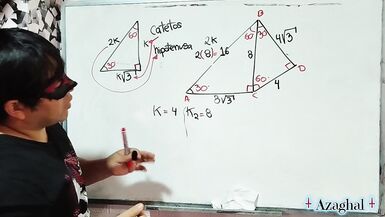 2K
60
K
30
K√3
Catetos
hipotenusa
B
60 30
2K
2(8)=16
8
4√3
60
D
4
A
30
C
8√3
K=4 | K₂=8
Azaghal